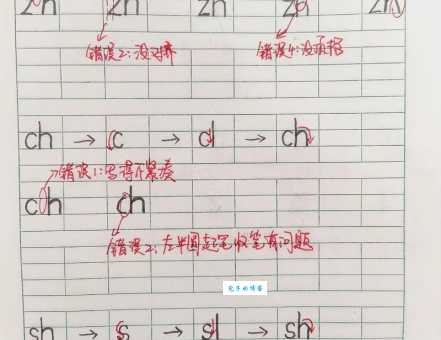 zh zh zh zh zh
错误2:没对齐 错误4:没顶格
ch → c → cl → ch
错误1:写得不紧凑
ch ch
错误2:左半圆起笔收笔有问题
sh → s → sl → sh